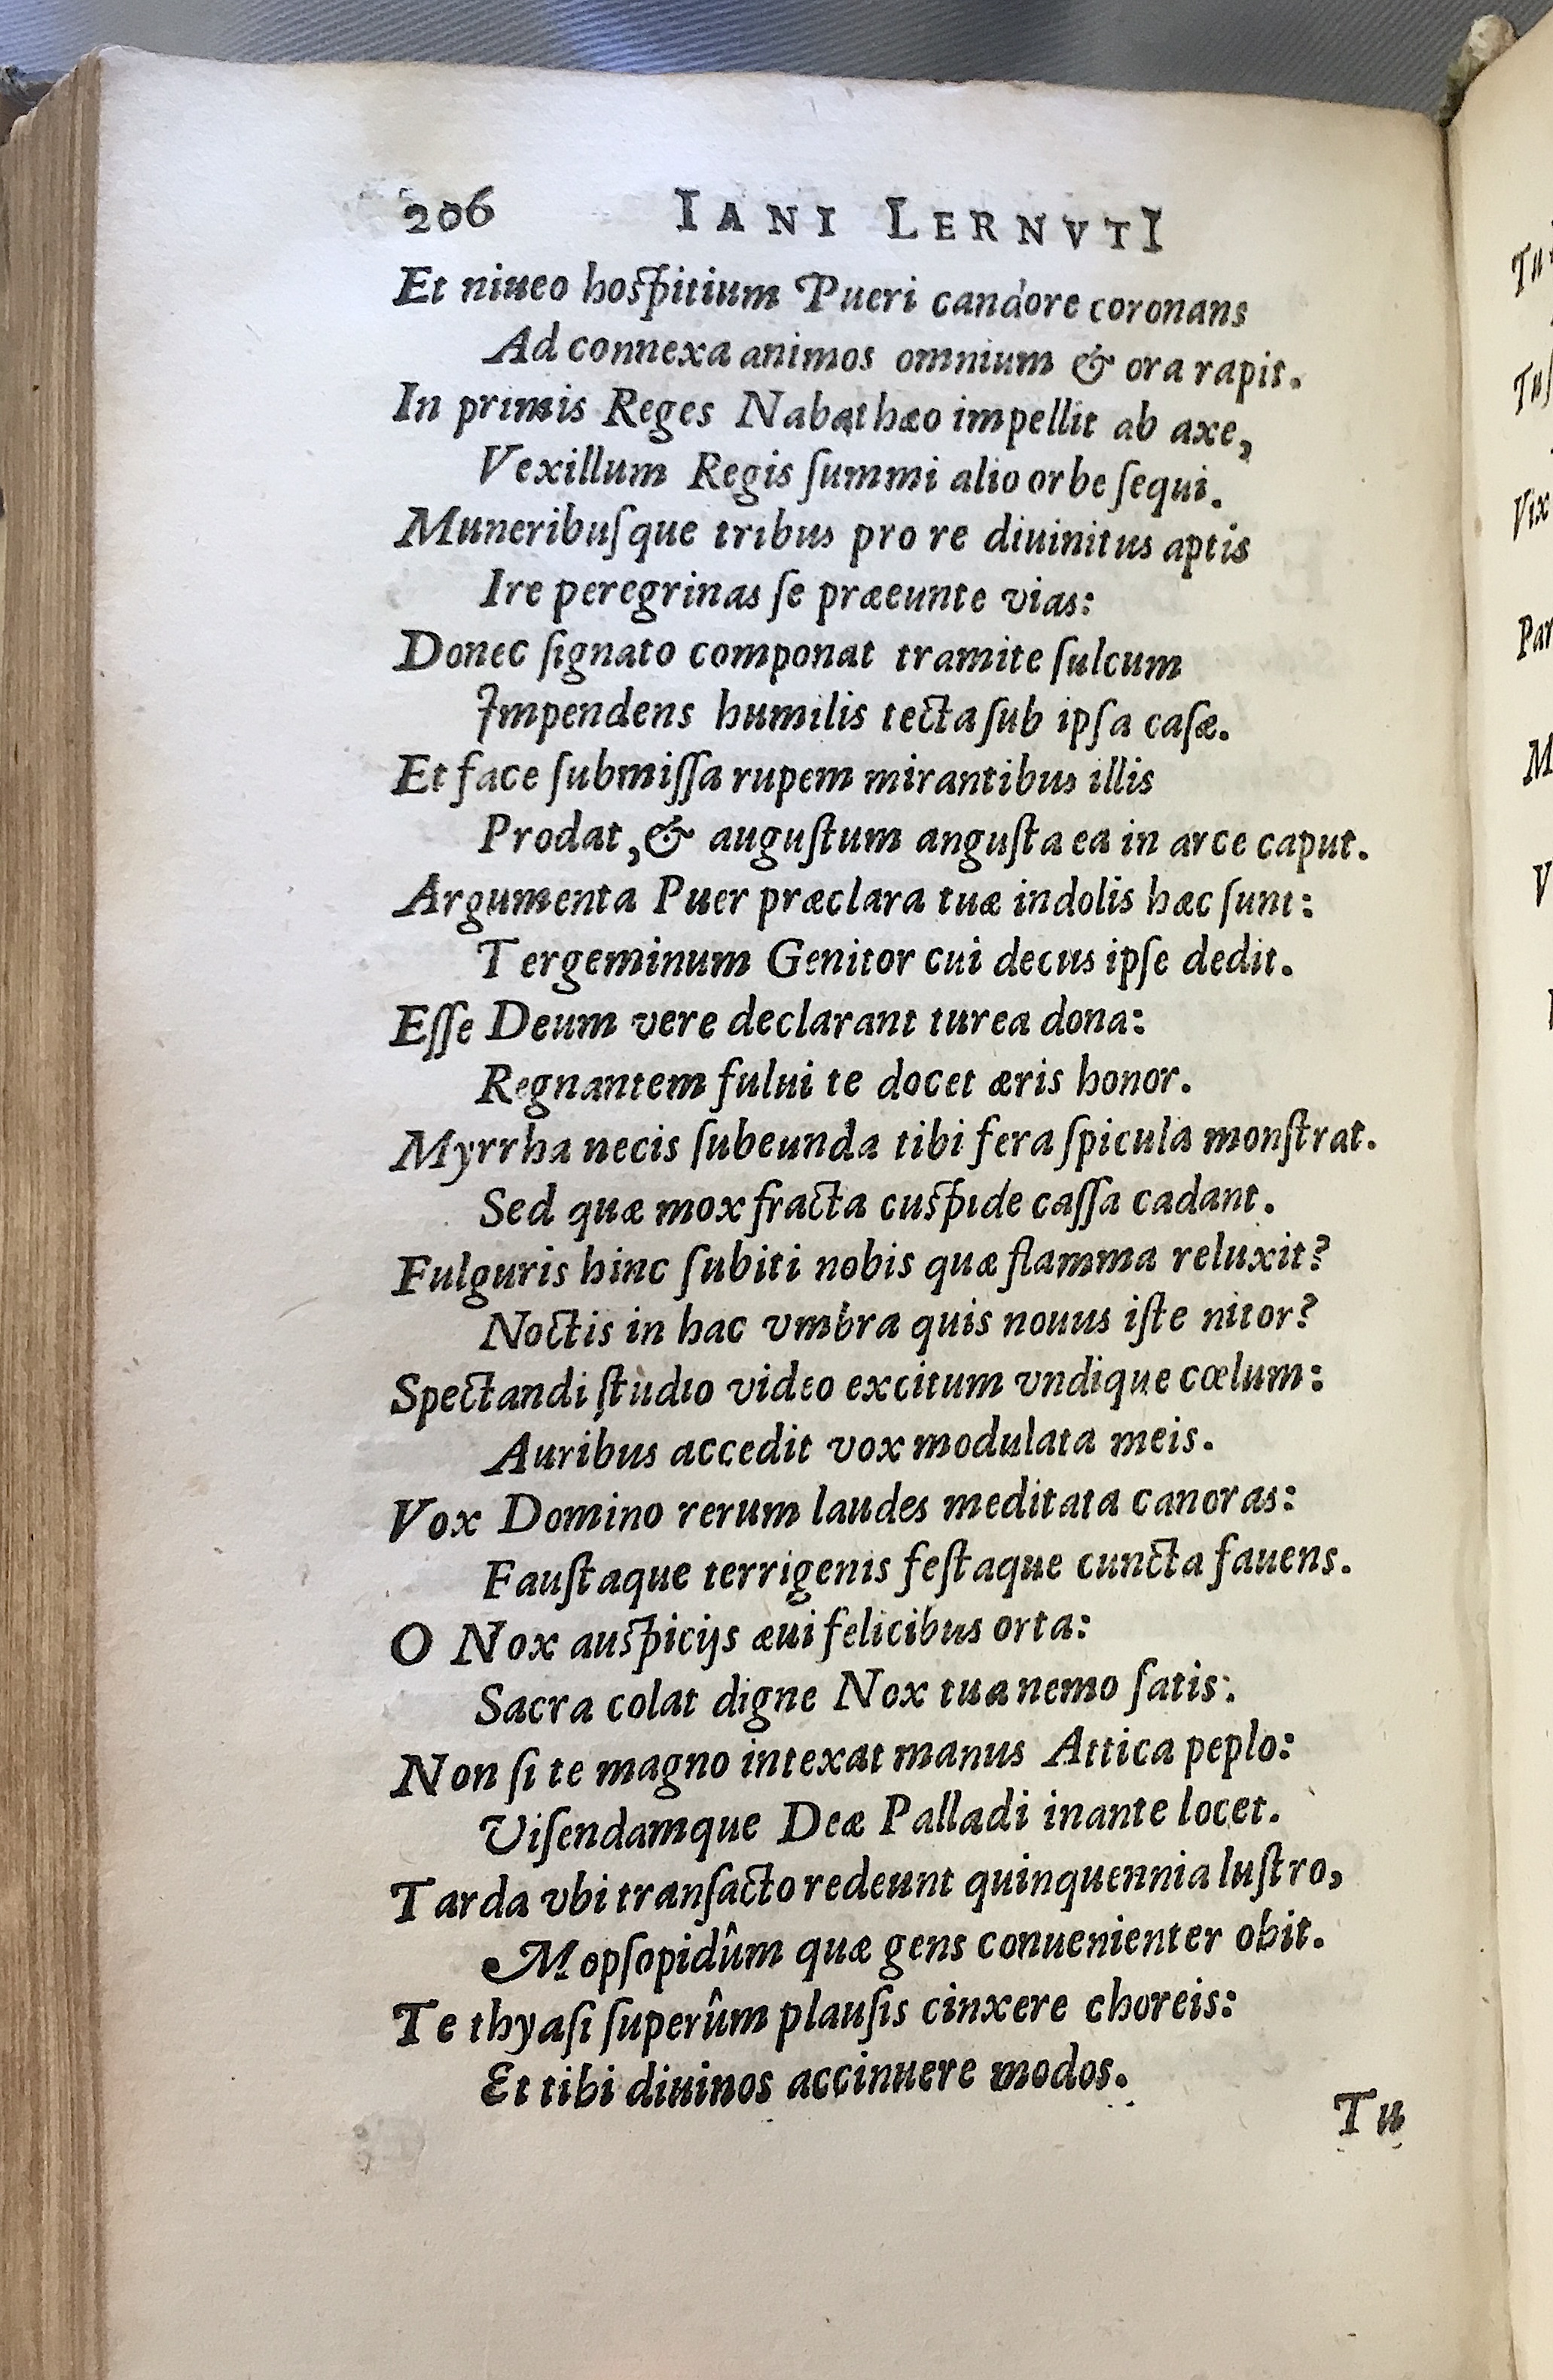 206 IANI LERNVTI
Et niueo hoſpitium Pueri candore coronans
Ad connexa animos omnium & ora rapit.
In primis Reges Nabathæo impellit ab axe,
Vexillum Regis ſummi alio orbe ſequi.
Muneribuſque tribus pro re diuinitus aptis
Ire peregrinas ſe præeunte vias:
Donec ſignato componat tramite ſulcum
Impendens humilis tecta ſub ipſa caſæ.
Et face ſubmiſſa rupem mirantibus illis
Prodat, & auguſtum anguſta ea in arce caput.
Argumenta Puer præclara tuæ indolis hæc ſunt:
Tergeminum Genitor cui decus ipſe dedit.
Eſſe Deum vere declarant turea dona:
Regnantem fului te docet æris honor.
Myrrha necis ſubeunda tibi fera ſpicula monſtrat.
Sed quæ mox fracta cuſpide caſſa cadant.
Fulguris hinc ſubiti nobis quæ flamma reluxit?
Noctis in hac vmbra quis nouus iſte nitor?
Spectandi ſtudio video excitum vndique cœlum:
Auribus accedit vox modulata meis.
Vox Domino rerum laudes meditata canoras:
Fauſtaque terrigenis feſtaque cuncta fauens.
O Nox auſpicijs æui felicibus orta:
Sacra colat digne Nox tua nemo ſatis.
Non ſi te magno intexat manus Attica peplo:
Viſendamque Deæ Palladi inante locet.
Tarda vbi tranſacto redeunt quinquennia luſtro,
Mopſopidûm quæ gens conuenienter obit.
Te thyaſi ſuperûm plauſis cinxere choreis:
Et tibi diuinos accinuere modos.
Tu
Tu
Tuſ
Vix
Par
M
V